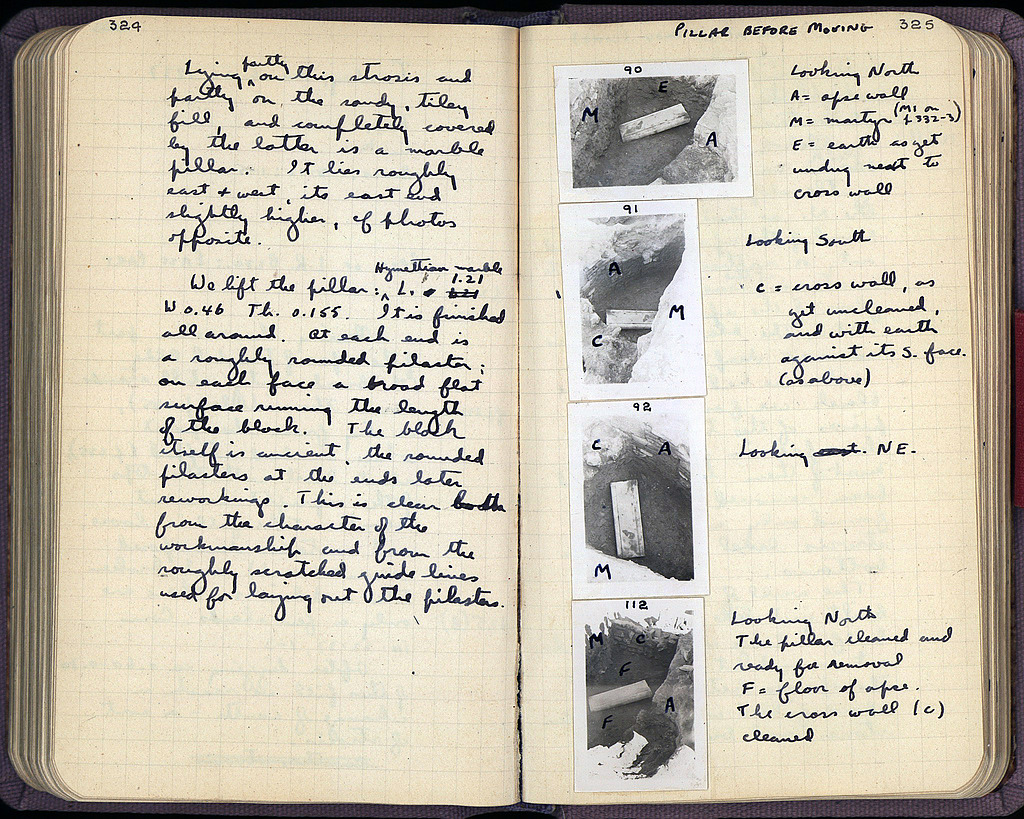 324
Lying partly on this strosis and
partly on the sandy, tiley
fill, and completely covered
by the latter is a marble
pillar. It lies roughly
east & west, its east end
slightly higher, cf photos
opposite.
Hymettian marble
We lift the pillar: L. 1.21
W 0.46 Th. 0.155. It is finished
all around. At each end is
a roughly rounded pilaster;
on each face a broad flat
surface running the length
of the block. The block
itself is ancient, the rounded
pilasters at the ends later
reworkings. This is clear both
from the character of the
workmanship and from the
roughly scratched guide lines
used for laying out the pilasters.
PILLAR BEFORE MOVING 325
90
E
M
A
Looking North
A = apse wall
M = martyr (M1 on
p 332-3)
E = earth as yet
undug next to
cross wall
91
A
M
C
Looking South
C = cross wall, as
yet uncleaned,
and with earth
against its S. face.
(as above)
92
C A
M
Looking NE.
112
M C
F
A
F
Looking North
The pillar cleaned and
ready for removal
F = floor of apse.
The cross wall (c)
cleaned